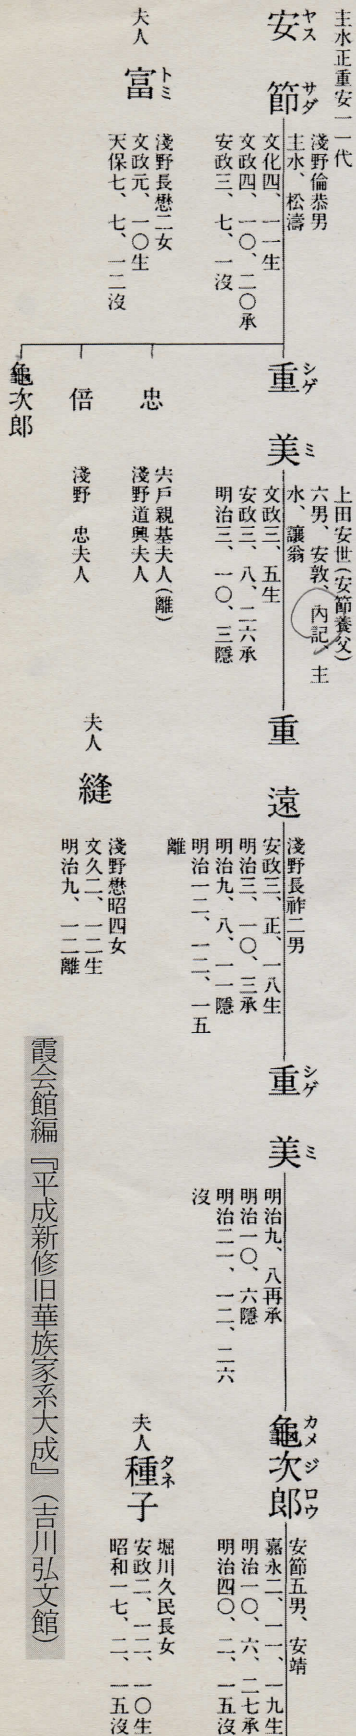 主水正重安一一代
安節
ヤスサダ
淺野倫恭男
主水、松濤
文化四、一一生
文政四、一〇、二〇承
安政三、七、一沒
夫人
富
トミ
淺野長懋二女
文政元、一〇生
天保七、七、一二沒
重美
シゲミ
上田安世(安節養父)
六男、安敦、內記、主
水、讓翁
文政三、五生
安政三、八、二六承
明治三、一〇、三隱
忠
宍戶親基夫人(離)
淺野道興夫人
倍
淺野忠夫人
龜次郎
重遠
淺野長祚二男
安政三、正、一八生
明治三、一〇、三承
明治九、八、一一隱
明治一二、一二、一五
離
夫人
縫
淺野懋昭四女
文久二、一二生
明治九、一二離
重美
シゲミ
明治九、八再承
明治一〇、六隱
明治二一、一二、二六
沒
龜次郎
カメジロウ
安節五男、安靖
嘉永二、一一、一九生
明治一〇、六、二七承
明治四〇、二、一五沒
夫人
種子
タネ
堀川久民長女
安政二、一二、一〇生
昭和一七、二、一五沒
霞会館編『平成新修旧華族家系大成』(吉川弘文館)